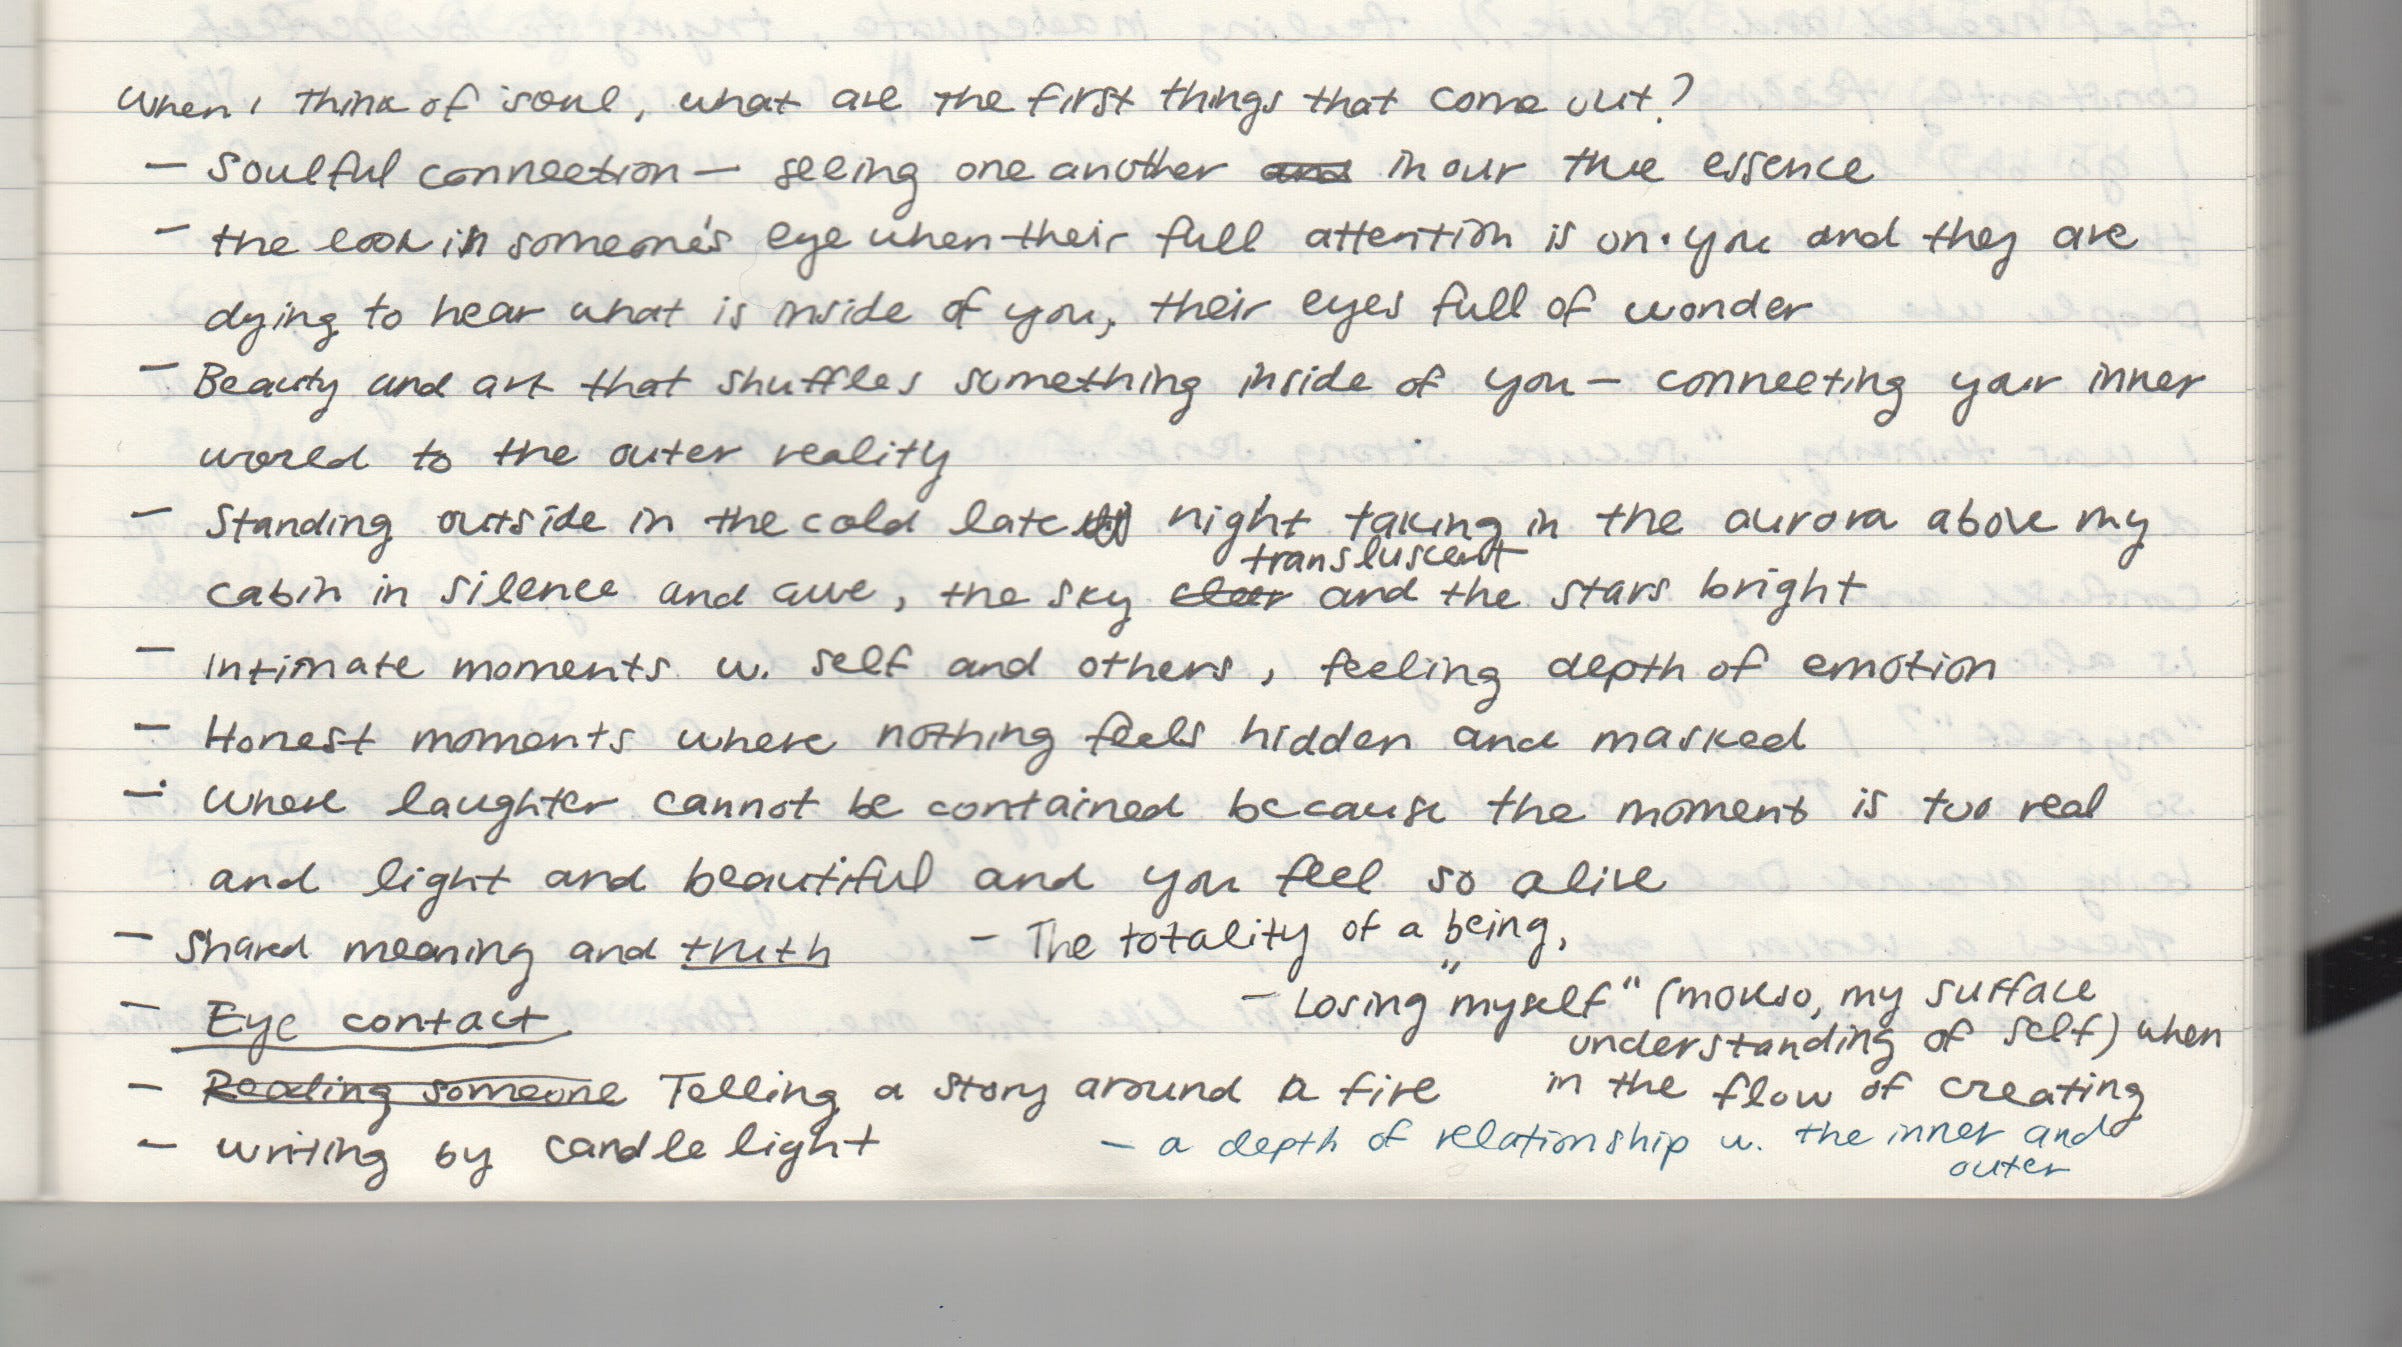 When I think of soul, what are the first things that come out?
— Soulful connection — seeing one another and in our true essence
— the look in someone's eye when their full attention is on you and they are
dying to hear what is inside of you, their eyes full of wonder
— Beauty and art that shuffles something inside of you — connecting your inner
world to the outer reality
— Standing outside in the cold late night taking in the aurora above my
transluscent
cabin in silence and awe, the sky clear and the stars bright
— Intimate moments w. self and others, feeling depth of emotion
— Honest moments where nothing feels hidden and masked
— Where laughter cannot be contained because the moment is too real
and light and beautiful and you feel so alive
— Shared meaning and truth
— The totality of a being,
— Eye contact
— Losing "myself" (mokso, my surface
understanding of self) when
in the flow of creating
— Reading someone Telling a story around a fire
— writing by candle light
— a depth of relationship w. the inner and
outer